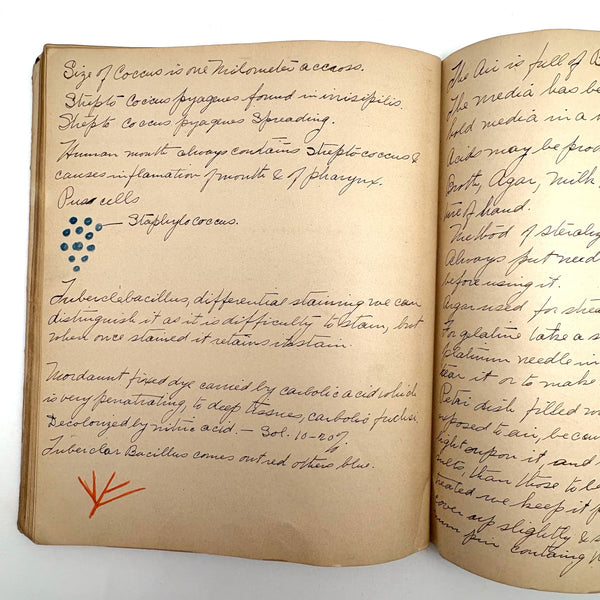 Size of Coccus is one Milometer accross.
Strepto Coccus pyagnes found in irisipilis.
Strepto coccus pyagnes Spreading.
Human mouth always contains Streptococcus &
causes inflamation of mouth & of pharynx.
Puss cells
Staphylococcus.
Tubercle bacillus, differential staining we can
distinguish it as it is difficulty to stain, but
when once stained it retains its stain.
Mordaunt fixed dye carried by carbolic acid which
is very penetrating, to deep tissues, carbolic fuchsi,
Decolonized by nitric acid. — Sol. 10-20%
Tubercular Bacillus comes out red others blue.
The Air is full of B
The media has be
hold media in a
Acids may be prod
Broth, Agar, Milk
ure of hand.
Method of steraliz
Always put need
before using it.
Agar used for strea
For gelatine take a s
platinum needle in
tear it or to make
Petri dish filled w
exposed to air, be cov
light upon it, and
than those to be
treated we keep it
cover up slightly & s
pin containg